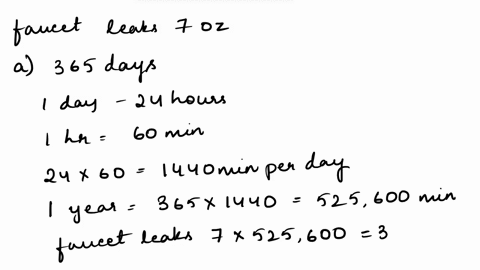 faucet leaks 7 oz
a) 365 days
1 day - 24 hours
1 hr = 60 min
24 x 60 = 1440 min per day
1 year = 365 x 1440 = 525,600 min
faucet leaks 7 x 525,600 = 3